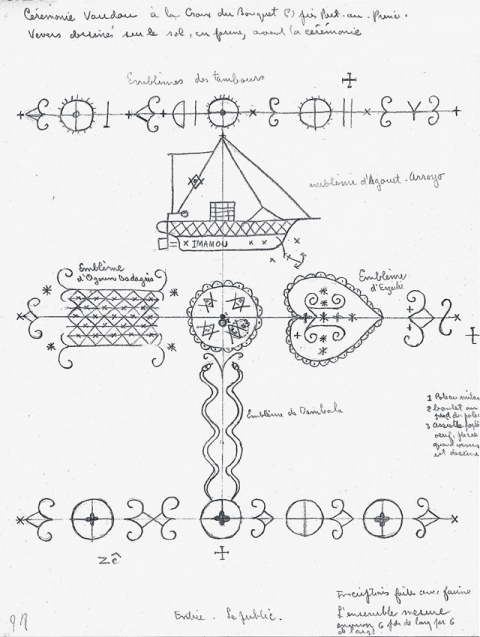 Cérémonie Vaudou à la Croix du Bouquet (?) près Port-au-Prince.
Vevers dessinés sur le sol, en farine, avant la cérémonie
Emblèmes des tambours
emblème d'Agouet-Arroyo
IMAMOU
Emblème
d'Ogoun Badagris
Emblème
d'Erzulie
Emblème de Dambala
1 Poteau
2
3 assiette
oeuf,
quand
est dessiné
Zê
Entrée. Le public.
Inscriptions faites avec farine
L'ensemble mesure
environ 6 pds de long par 6
de large